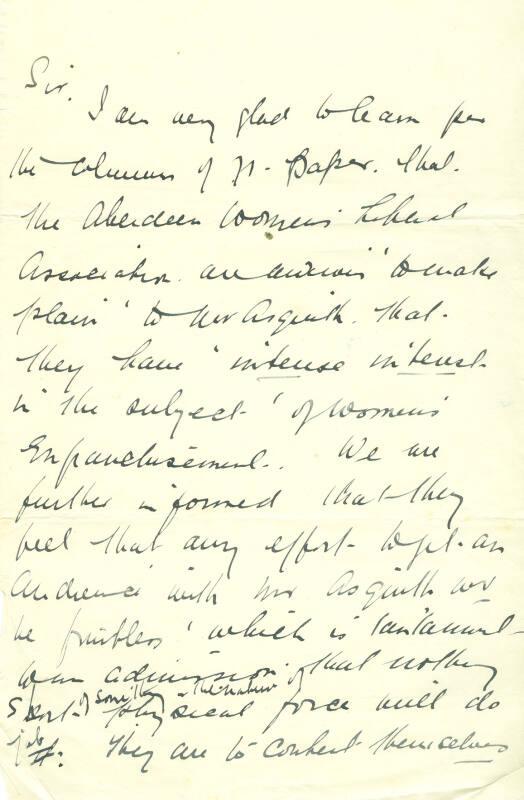 Sir,
I am very glad to learn per
the columns of yr. paper. that.
the Aberdeen Women's Liberal
Association. are anxious "to make
plain" to Mr Asquith. that.
they have "intense interest.
in the subject" of Women's
Enfranchisement. We are
further informed that they
feel that any effort to get an
audience with Mr Asquith wd
be fruitless' which is tantamt.
to an admission. that nothing
short of something in the nature of physical force will do
it. They are to content themselves